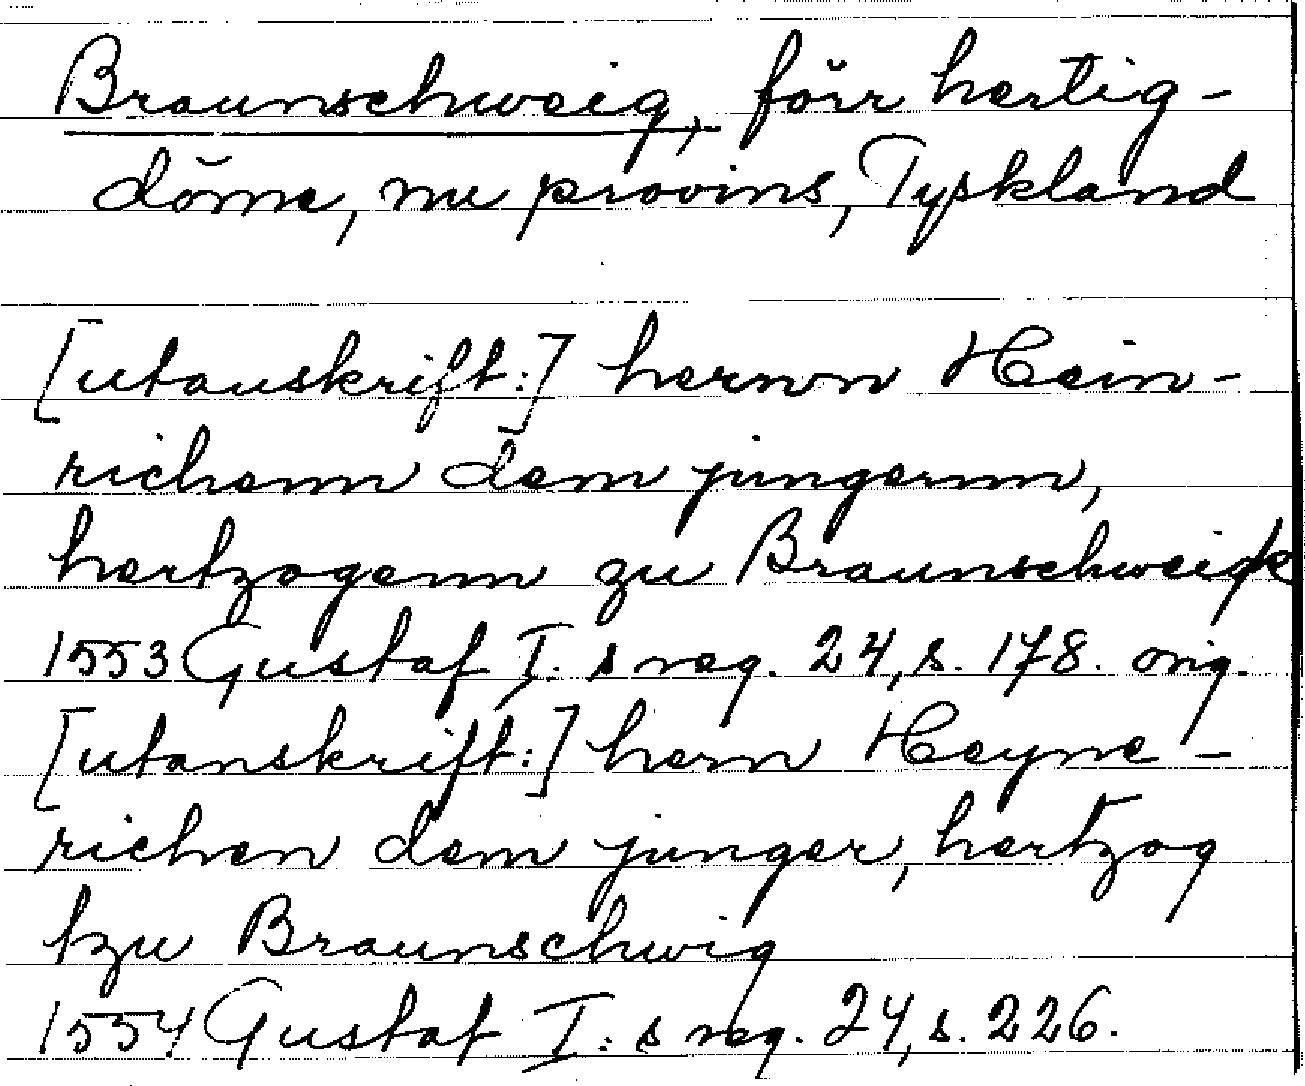 Braunschweig, förr hertig-
döme, nu provins, Tyskland
[utanskrift:] hernn Hein-
richenn dem jungernn,
hertzogenn zu Braunschweigk
1553 Gustaf I:s reg. 24, s. 178. orig.
[utanskrift:] hern Heyne-
richen dem junger, hertzog
tzu Braunschwig
1554 Gustaf I:s reg. 24, s. 226.